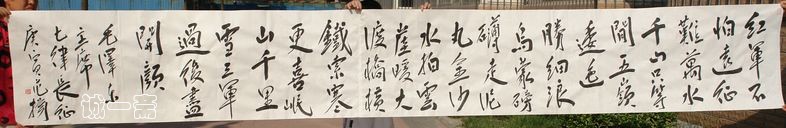 紅軍不
怕遠征
難萬水
千山只等
間五嶺
逶迤
騰細浪
烏蒙磅
礴走泥
丸金沙
水拍雲
崖暖大
渡橋橫
鐵索寒
更喜岷
山千里
雪三軍
過後盡
開顏
毛澤東
主席
七律長征
庚寅
诚一斋